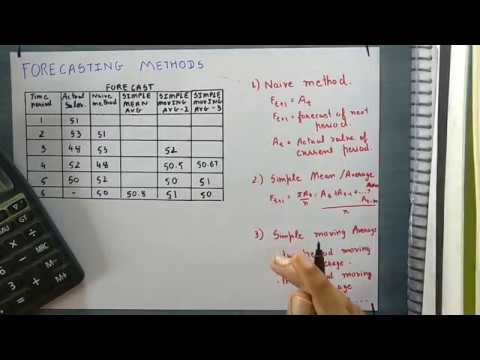 FORECASTING METHODS
FORECAST
Time period Actual Sales Naive method SIMPLE MEAN AVG SIMPLE MOVING AVG-2 SIMPLE MOVING AVG-3
1 51
2 53 51
3 48 53 52
4 52 48 50.5 50.67
5 50 52 50 51
6 - 50 50.8 51 50
1) Naive method.
Ft+1 = At
Ft+1 = forecast of next
period.
At = Actual value of
current period.
2) Simple Mean / Average
Ft+1 = ΣAt/n = At + At-1 + ....
n
3) Simple moving Average
moving
moving